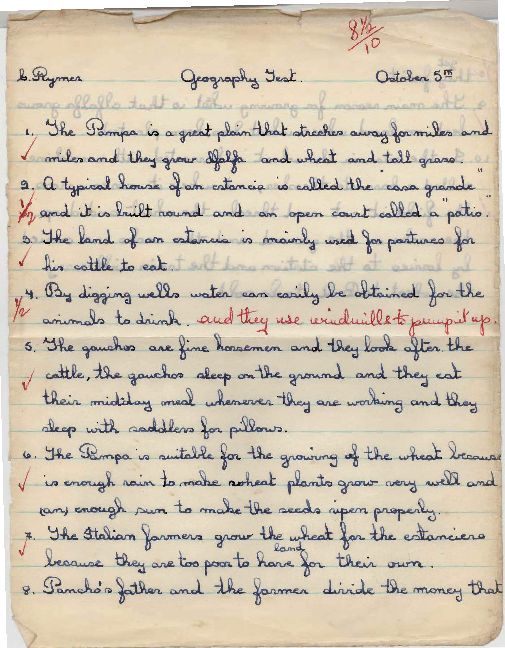 8½
10
C. Rymer Geography Test. October 5th
1. The Pampa is a great plain that streches away for miles and
miles and they grow alfalfa and wheat and tall grass
2. A typical house of an estancia is called the "casa grande"
½ and it is built round and an open court called a "patio".
3. The land of an estancia is mainly used for partures for
his cattle to eat.
4. By digging wells water can easily be obtained for the
½ animals to drink. and they use windmills to pump it up.
5. The gauchos are fine horsemen and they look after the
cattle, the gauchos sleep on the ground and they eat
their mididay meal whenever they are working and they
sleep with saddlers for pillows.
6. The Pampa is suitable for the growing of the wheat because
is enough rain to make wheat plants grow very well and
(an) enough sun to make the seeds ripen properly.
7. The Italian farmers grow the wheat for the estanciero
land
because they are too poor to have for their own.
8. Pancho's father and the farmer divide the money that